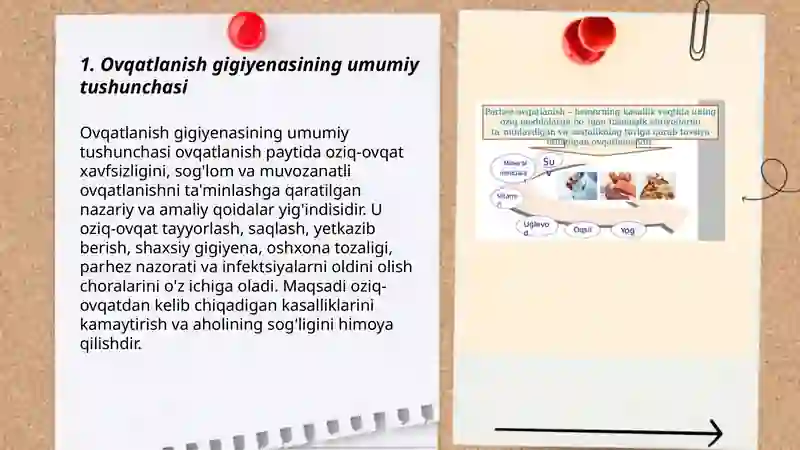 1. Ovqatlanish gigiyenasining umumiy
tushunchasi
Ovqatlanish gigiyenasining umumiy
tushunchasi ovqatlanish paytida oziq-ovqat
xavfsizligini, sog'lom va muvozanatli
ovqatlanishni ta'minlashga qaratilgan
nazariy va amaliy qoidalar yig'indisidir. U
oziq-ovqat tayyorlash, saqlash, yetkazib
berish, shaxsiy gigiyena, oshxona tozaligi,
parhez nazorati va infektsiyalarni oldini olish
choralarini o'z ichiga oladi. Maqsadi oziq-
ovqatdan kelib chiqadigan kasalliklarini
kamaytirish va aholining sog'ligini himoya
qilishdir.
Parhez ovqatlanish – bemorning kasallik vaqtida uning
oziq moddalarga bo'lgan fiziologik
ta'minlaydigan va kasalikning turiga qarab tavsiya
ovqatlanishdir.
Mineral
Su
v
Vitami
n
Uglevo
d
Oqsil
Yog